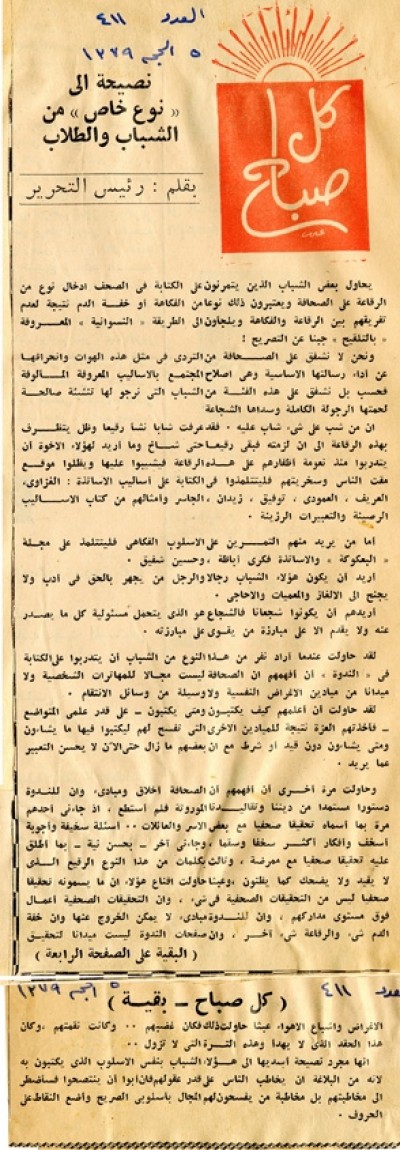 العدد ٤١١
٥ الحجه ١٣٧٩
كل صباح
نصيحة الى
« نوع خاص » من
الشباب والطلاب
بقلم : رئيس التحرير
يحاول بعض الشباب الذين يتمرنون على الكتابة فى الصحف ادخال نوع من
الرقاعة على الصحافة ويعتبرون ذلك نوعا من الفكاهة أو خفة الدم نتيجة لعدم
تفريقهم بين الرقاعة والفكاهة ويلجاون الى الطريقة « النسوانية » المعروفة
« بالتلقيح » جبنا عن التصريح !
ونحن لا نشفق على الصحافة من التردى فى مثل هذه الهوات وانحرافها
عن أداء رسالتها الاساسية وهى اصلاح المجتمع بالاساليب المعروفة المألوفة
فحسب بل نشفق على هذه الفئة من الشباب التى نرجو لها تنشئة صالحة
لحمتها الرجولة الكاملة وسداها الشجاعة
ان من شب على شىء شاب عليه . فقد عرفت شابا نشأ رقيعا وظل يتظرف
بهذه الرقاعة الى ان لزمته فبقى رقيعا حتى شاخ وما أريد لهؤلاء الاخوة أن
يتدربوا منذ نعومة أظفارهم على هذه الرقاعة فيشيبوا عليها ويظلوا موقع
مقت الناس وسخريتهم فليتتلمذوا فى الكتابة على أساليب الاساتذة : الغزاوى،
العريف ، العمودى ، توفيق ، زيدان ، الجاسر وأمثالهم من كتاب الاساليب
الرصينة والتعبيرات الرزينة .
أما من يريد منهم التمرين على الاسلوب الفكاهى فليتتلمذ على مجلة
« البعكوكة » والاساتذة فكرى أباظة ، وحسين شفيق .
أريد أن يكون هؤلاء الشباب رجالا والرجل من يجهر بالحق فى أدب ولا
يجنح الى الالغاز والمعميات والاحاجى .
أريدهم أن يكونوا شجعانا فالشجاع هو الذى يتحمل مسئولية كل ما يصدر
عنه ولا يقدم الا على مبارزة من يقوى على مبارزته .
لقد حاولت عندما أراد نفر من هذا النوع من الشباب أن يتدربوا على الكتابة
فى « الندوة » أن أفهمهم ان الصحافة ليست مجالا للمهاترات الشخصية ولا
ميدانا من ميادين الاغراض النفسية ولا وسيلة من وسائل الانتقام .
لقد حاولت أن أعلمهم كيف يكتبون ومتى يكتبون ـ على قدر علمى المتواضع
ـ فأخذتهم العزة نتيجة للميادين الاخرى التى تفسح لهم ليكتبوا فيها ما يشاءون
ومتى يشاءون دون قيد أو شرط مع ان بعضهم ما زال حتى الآن لا يحسن التعبير
عما يريد .
وحاولت مرة أخرى أن أفهمهم ان الصحافة أخلاق ومبادىء وان للندوة
دستورا مستمدا من ديننا وتقاليدنا الموروثة فلم أستطع ، اذ جاءنى أحدهم
مرة بما أسماه تحقيقا صحفيا مع بعض الاسر والعائلات .. أسئلة سخيفة وأجوبة
أسخف وأفكار أكثر سخفا وسقما ، وجاءنى آخر ـ بحسن نية ـ بما أطلق
عليه تحقيقا صحفيا مع ممرضة ، وثالث بكلمات من هذا النوع الرقيع الذى
لا يفيد ولا يضحك كما يظنون ، وعبثا حاولت اقناع هؤلاء ان ما يسمونه تحقيقا
صحفيا ليس من التحقيقات الصحفية فى شىء ، وان التحقيقات الصحفية أعمال
فوق مستوى مداركهم ، وان للندوة مبادىء لا يمكن الخروج عنها وان خفة
الدم شىء والرقاعة شىء آخر ، وان صفحات الندوة ليست ميدانا لتحقيق
( البقية على الصفحة الرابعة )
عدد ٤١١
٥ الحجه ١٣٧٩
( كل صباح ـ بقية )
الاغراض واشباع الاهواء عبثا حاولت ذلك فكان غضبهم .. وكانت نقمتهم ، وكان
هذا الحقد الذى لا يهدأ وهذه الثرة التى لا تزول ..
انها مجرد نصيحة أسديها الى هؤلاء الشباب بنفس الاسلوب الذى يكتبون به
لانه من البلاغة ان يخاطب الناس على قدر عقولهم فان أبوا أن ينتصحوا فسأضطر
الى مخاطبتهم بل مخاطبة من يفسحون لهم المجال بأسلوبى الصريح وأضع النقاط على
الحروف .